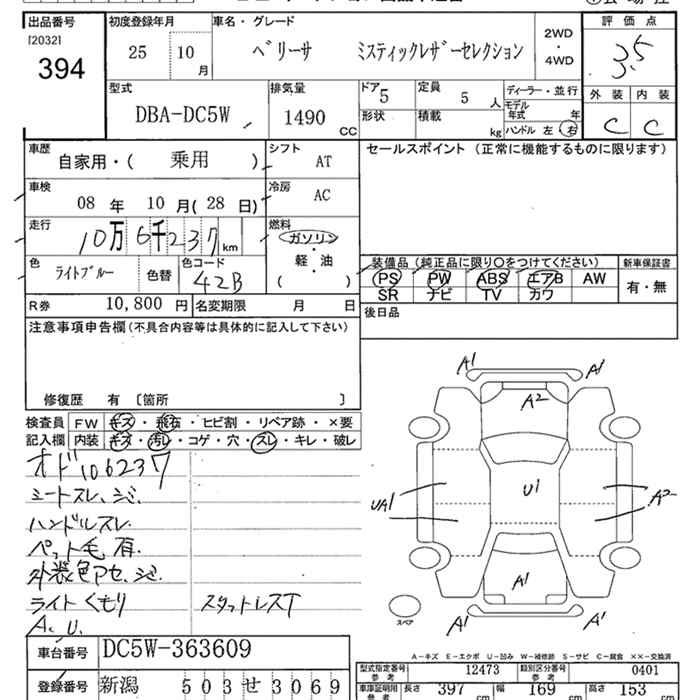 出品番号 初度登録年月 車名・グレード 2WD・4WD 評価点
[2032]
394
25 10月
ベリーサ ミスティックレザーセレクション
3.5
型式 DBA-DC5W
排気量 1490 CC
ドア 5 定員 5人
形状 積載 kg
ディーラー・並行
モデル年式 年
ハンドル 左 右
外装 内装
C C
車歴 自家用・( 乗用 )
シフト AT
セールスポイント (正常に機能するものに限ります)
車検 08年 10月(28日)
冷房 AC
走行 10万6千237km
燃料 ガソリン 軽・油 ( )
色 ライトブルー 色替 色コード 42B
装備品 (純正品に限り〇をつけてください) 新車保証書
PS PW ABS エアB AW 有・無
SR ナビ TV カワ
R券 10,800円 名変期限 月 日
後日品
注意事項申告欄(不具合内容等は具体的に記入して下さい)
修復歴 有 [箇所 ]
検査員記入欄
FW キズ・飛石・ヒビ割・リペア跡・×要
内装 キズ・汚レ・コゲ・穴・スレ・キレ・破レ
オド106237
シートスレ、シミ、
ハンドルスレ
ペット毛有.
外装色アセ、シミ.
ライトくもり スタットレスT
A. U.
A1 A1
A1
A2
UA1 U1 A2
A1
A1 A1
スペア
A-キズ E-エクボ U-凹み W-補修跡 S-サビ C-腐食 XX-交換済
車台番号 DC5W-363609
登録番号 新潟 503せ3069
型式指定番号 参考 12473 類別区分番号 参考 0401
車庫証明用 参考 長さ 397 cm 幅 169 cm 高さ 153 cm